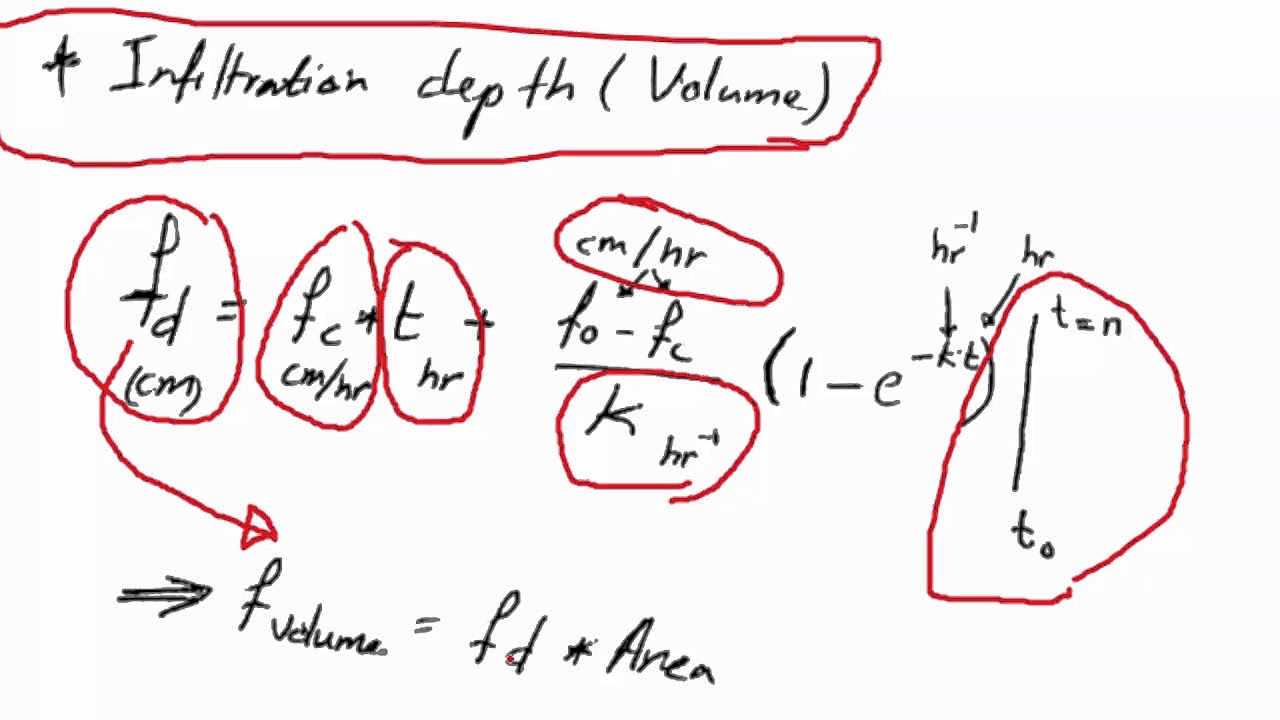 * Infiltration depth (Volume)
cm/hr
hr⁻¹ hr
fd = fc * t + (f₀ - fc) / K (1 - e^(-k·t)) | t=n
(cm) cm/hr hr hr⁻¹ t₀
⇒ f volume = fd * Area